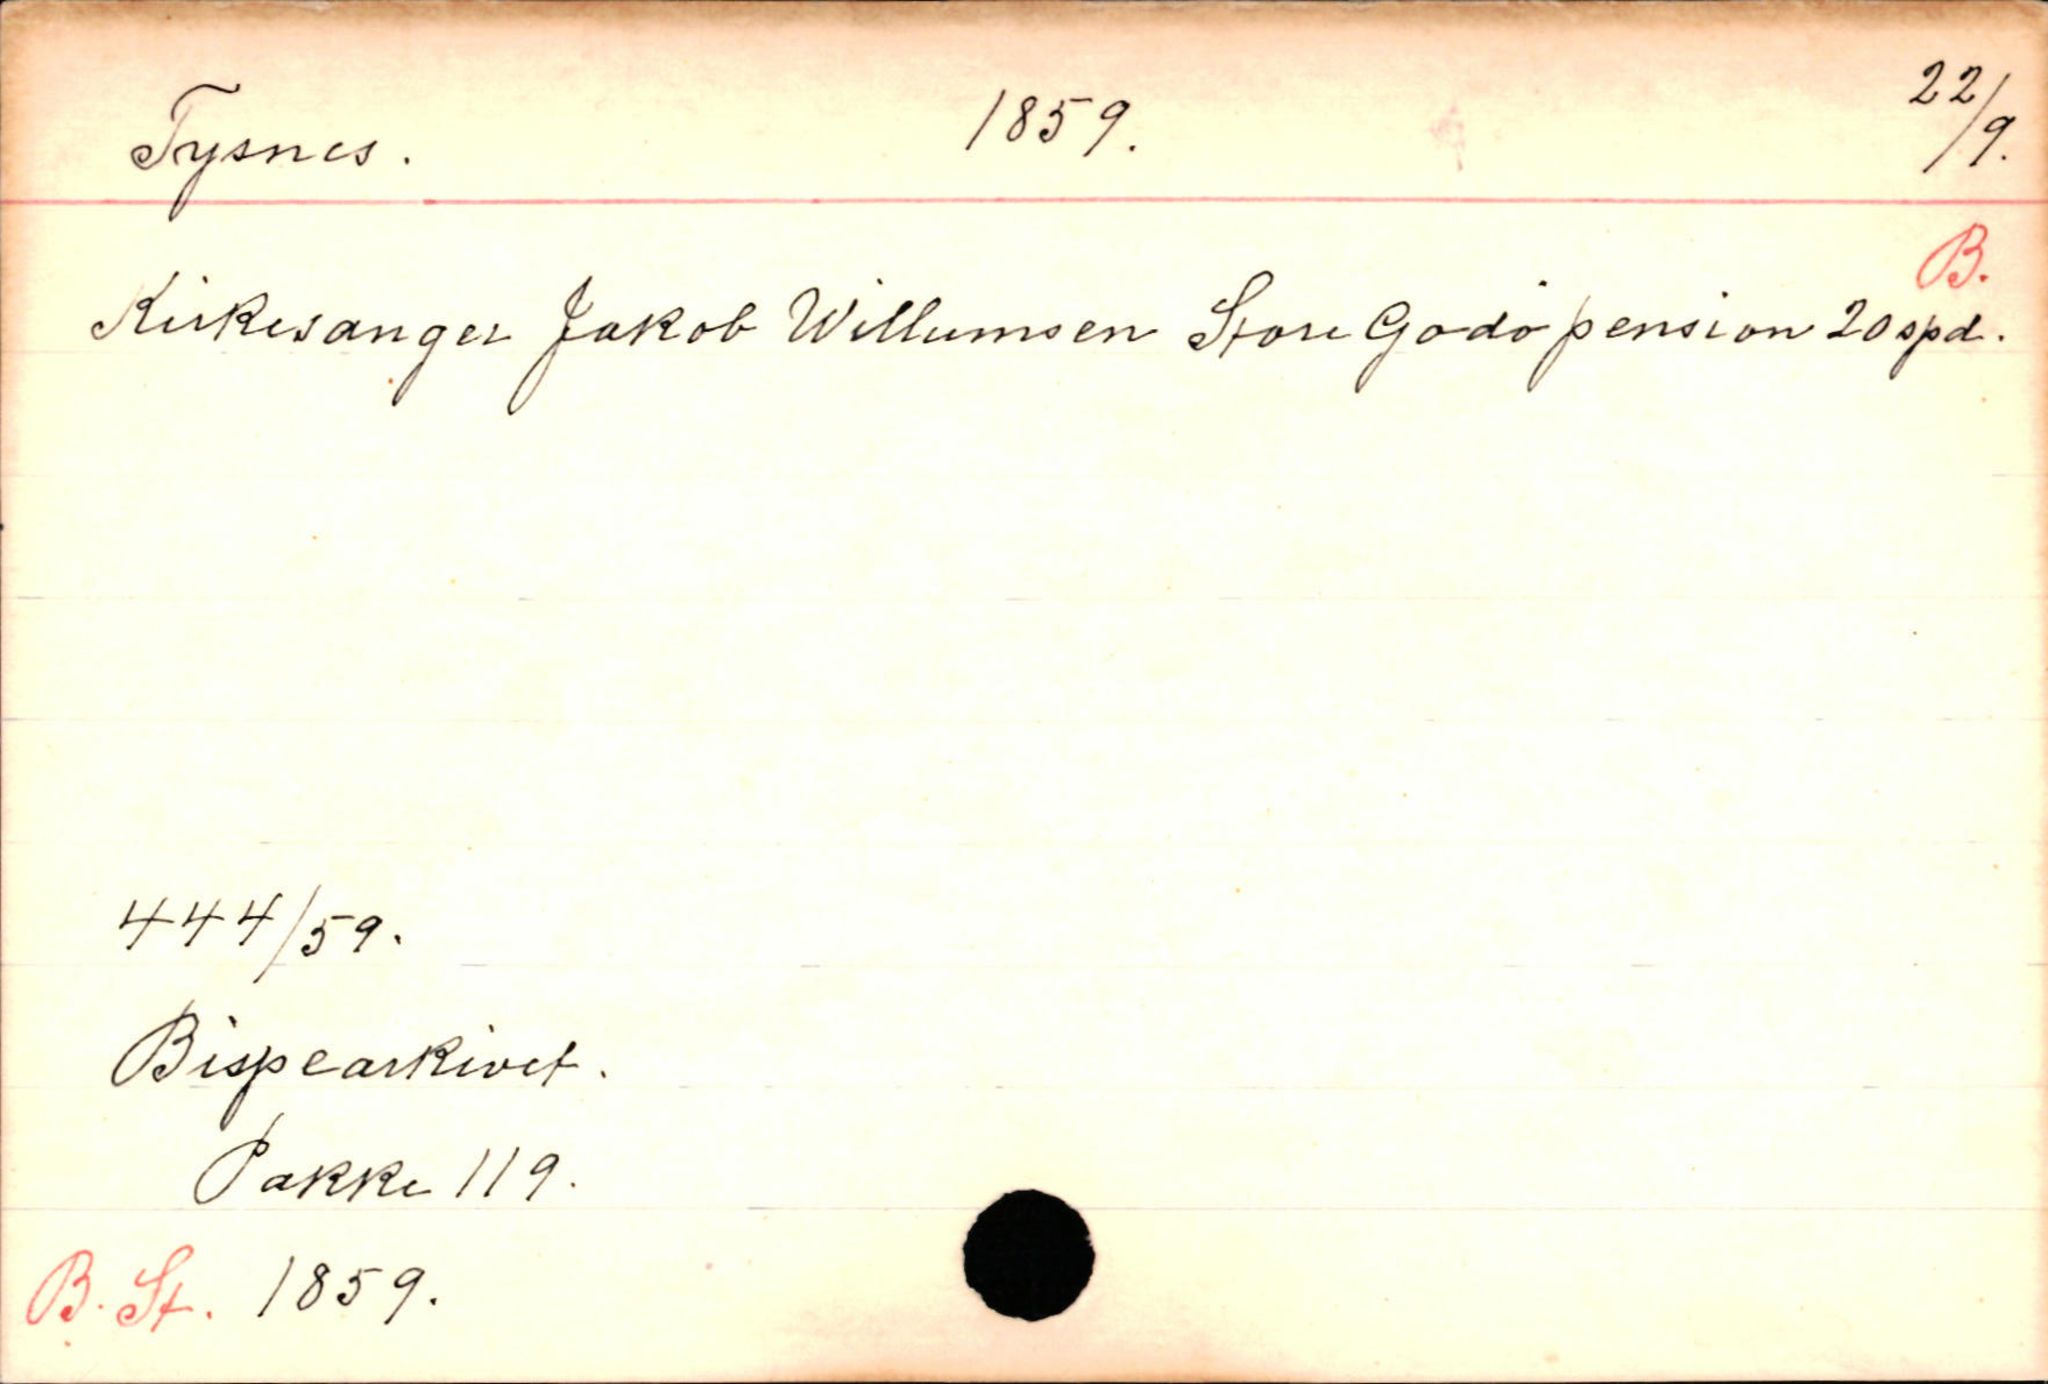 Tysnes. 1859. 22/9.
B.
Kirkesanger Jakob Willumsen Store Godö pension 20 spd.
444/59.
Bispearkivet.
Pakke 119.
B. St. 1859.